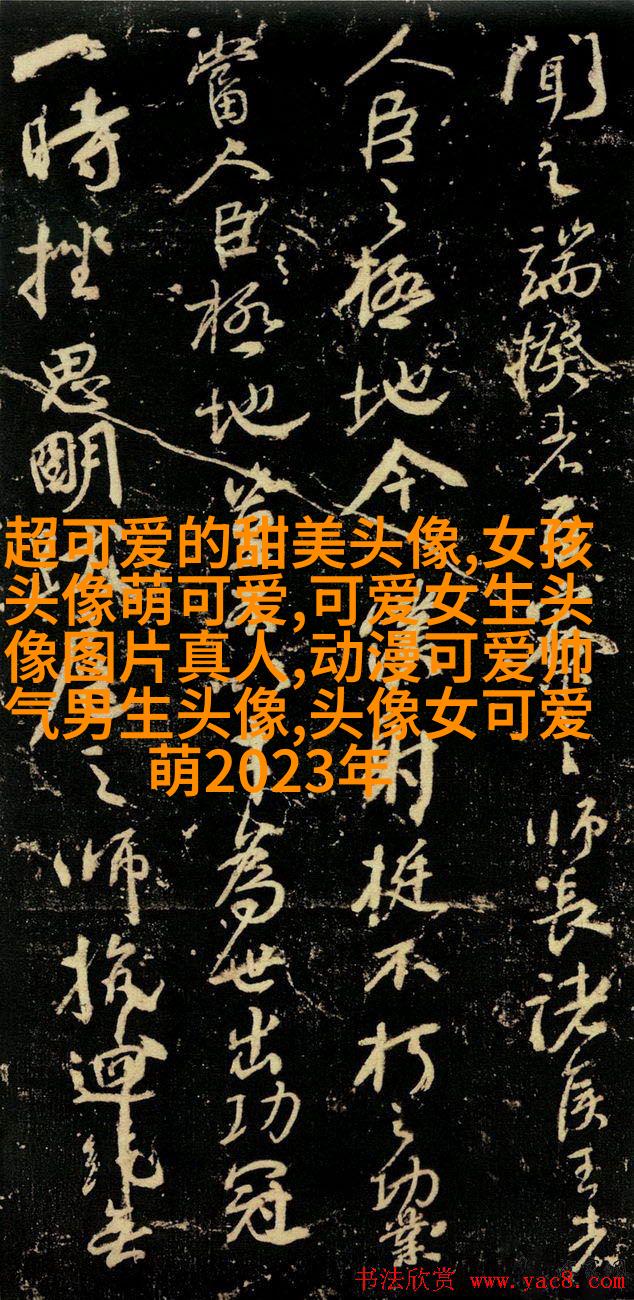 聞之端揆者百之師長諸侯王者
人臣之極地今僕射挺不朽之功業
當人臣之極地豈為世出功冠
一時挫思明之師抗迴紇無
超可爱的甜美头像,女孩
头像萌可爱,可爱女生头
像图片真人,动漫可爱帅
气男生头像,头像女可爱
萌2023年
书法欣赏 www.yac8.com